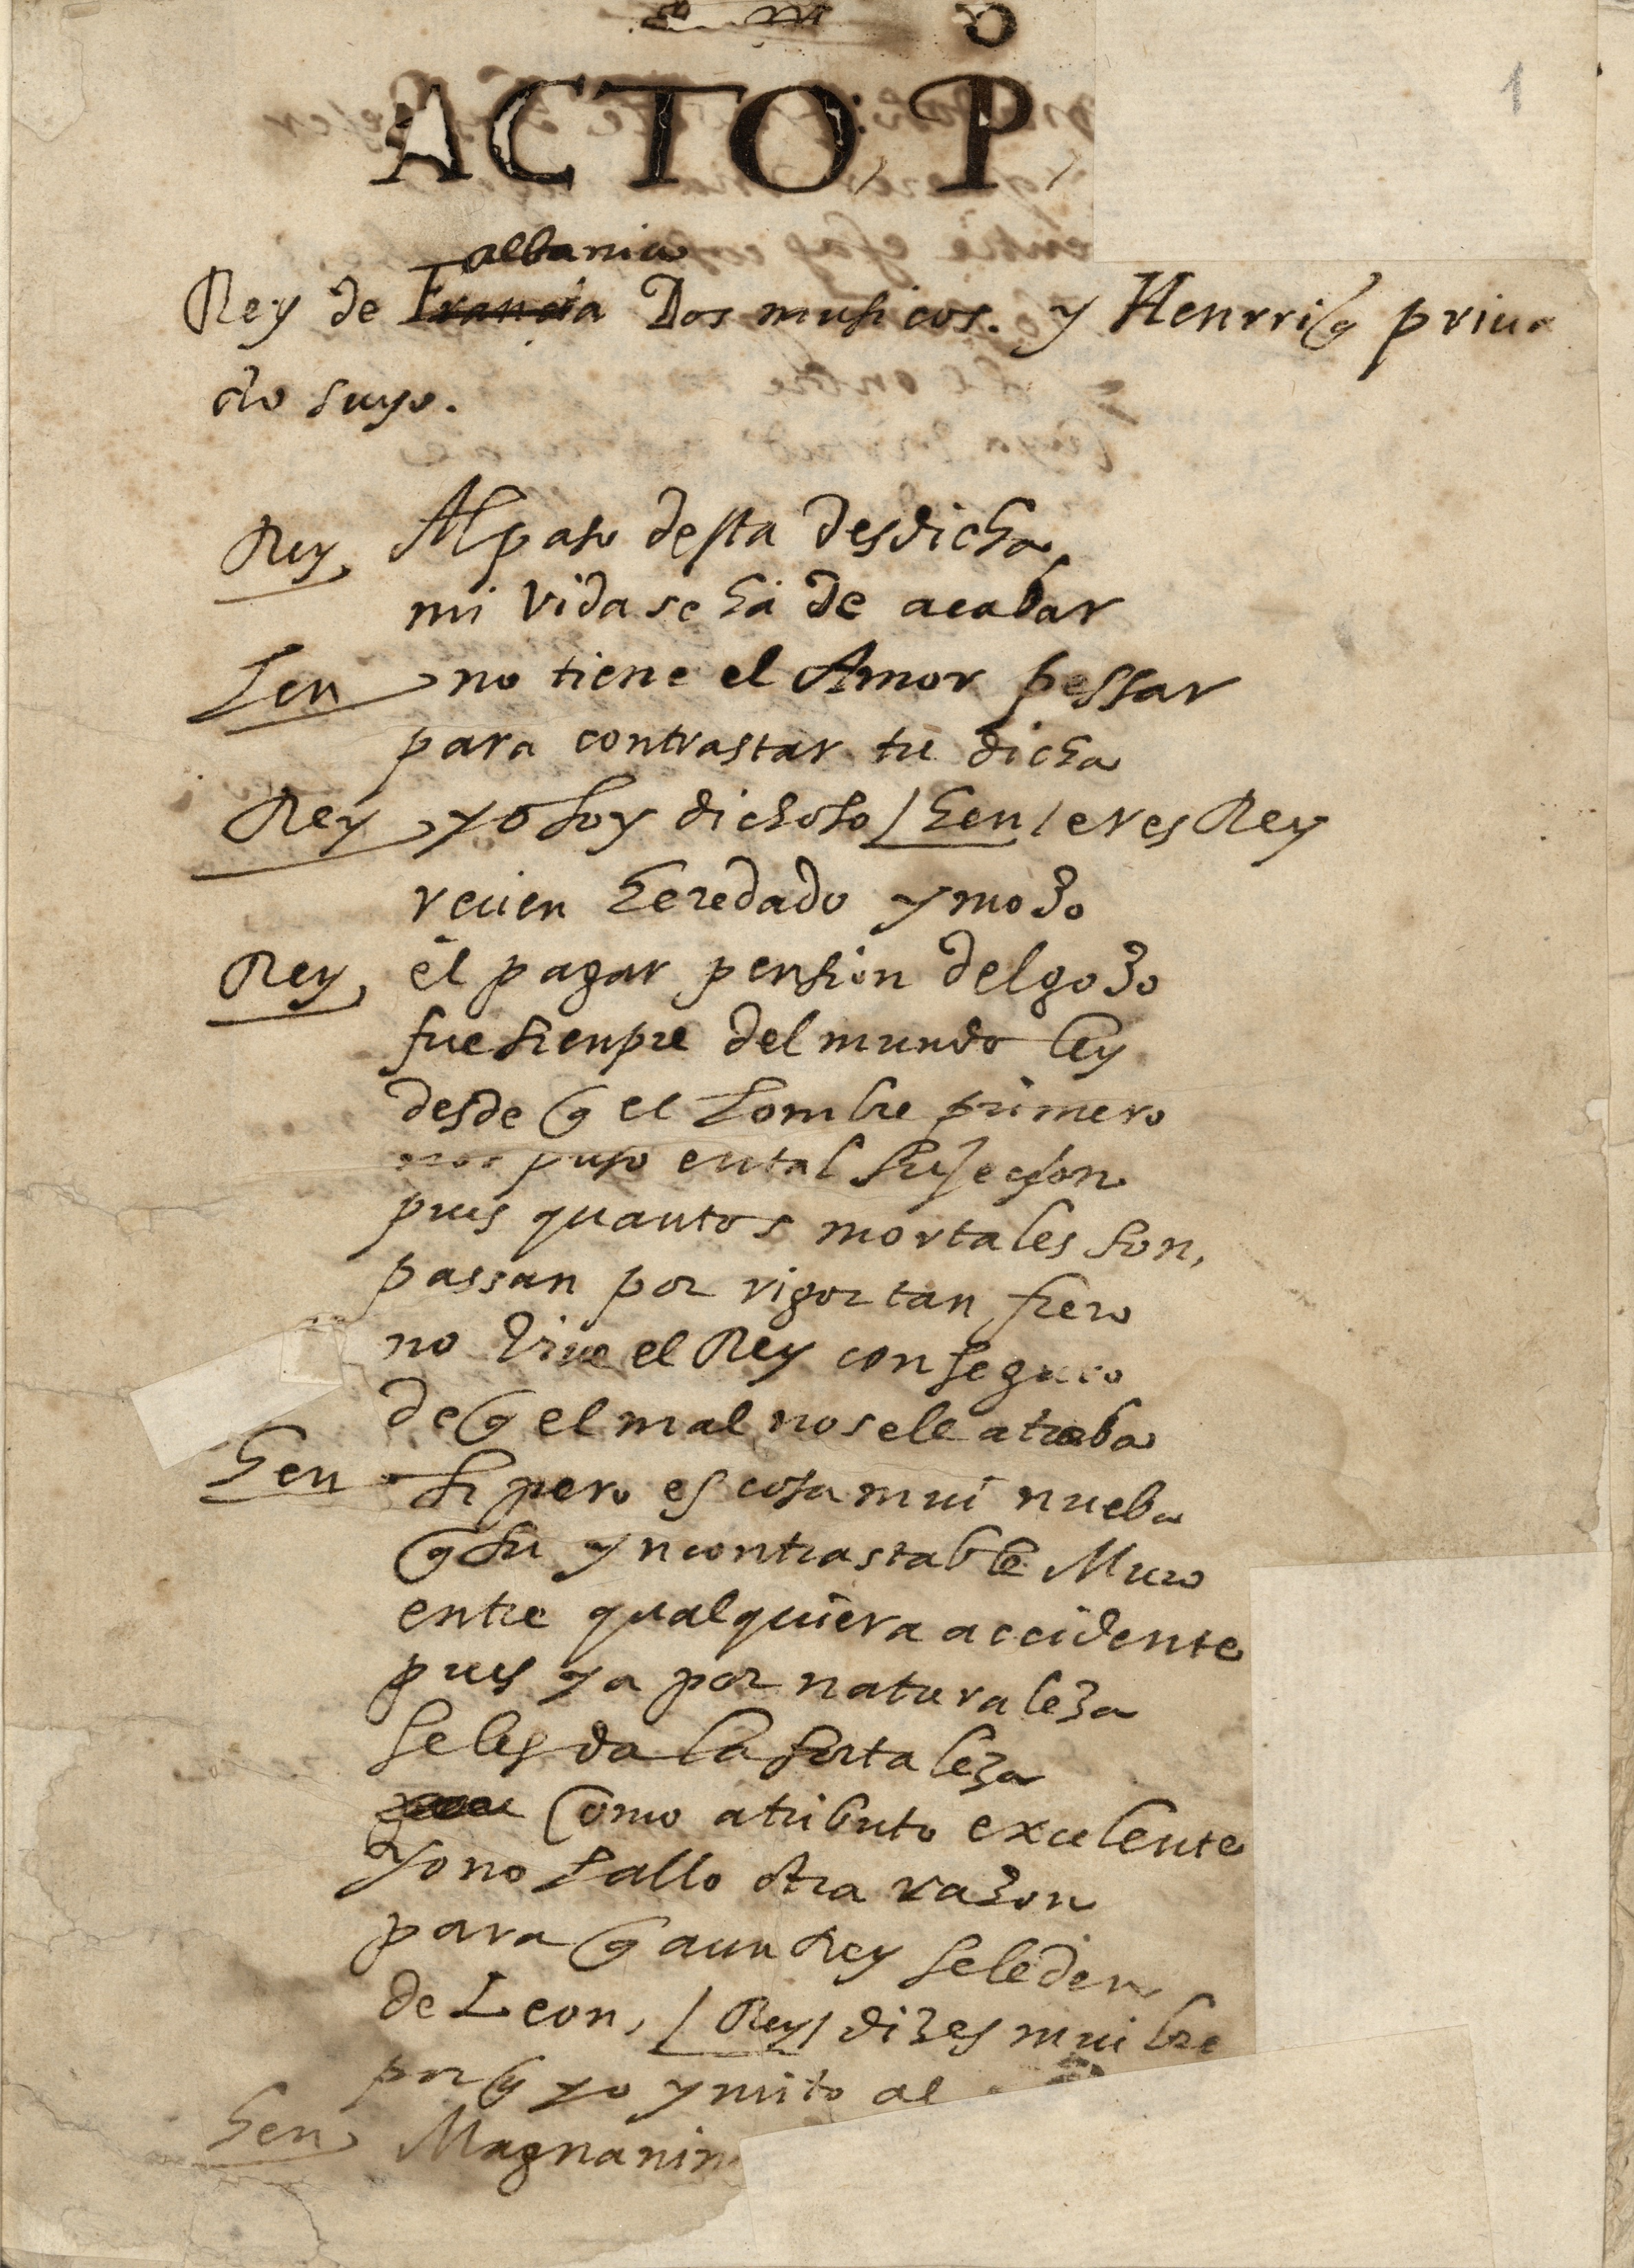 1
ACTO, Pº,
albania
Rey de Francia Dos musicos. y Henrriq priua
do suyo.
Rey, Al paso desta desdicha,
mi vida se ha de acabar
hen no tiene el Amor pessar
para contrastar tu dicha
Rey yo soy dichoso / hen / eres Rey
recien heredado y mozo
Rey, el pagar pension del gozo
fue sienpre del mundo ley
desde q el hombre primero
nos puso en tal sujeçion
pues quantos mortales son,
passan por rigor tan fiero
no viue el Rey con seguro
de q el mal no se le atreba
hen si pero es cosa mui nueba
q su yncontrastable Muro
entre qualquiera accidente
pues ya por naturaleza
se les da la fortaleza
Como atributo excelente
yo no hallo otra razon
para q a un Rey le den
de Leon, / Rey / dizes mui bie
por q yo ymito al
hen Magnanim